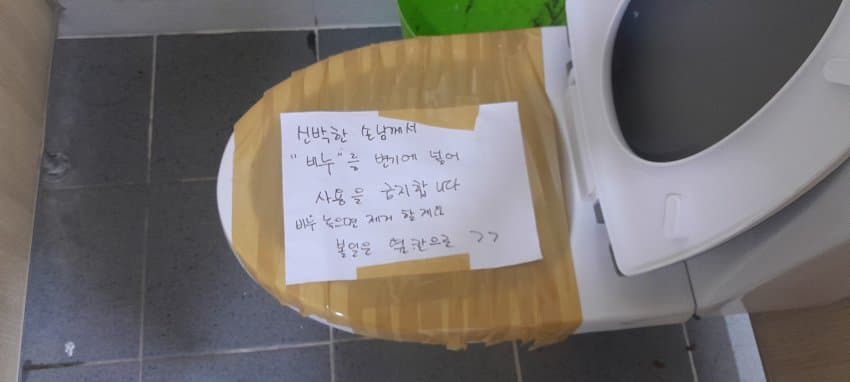 신박한 손님께서
"비누"를 변기에 넣어
사용을 금지합니다
비누 녹으면 제거 할게요
볼일은 옆칸으로 >>